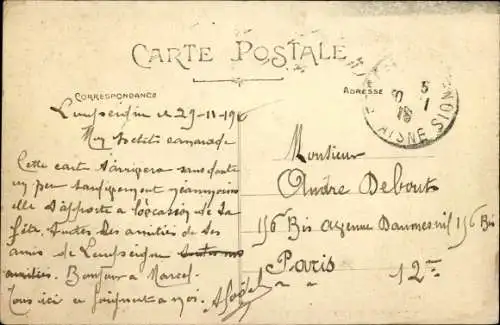 CARTE POSTALE
CORRESPONDANCE
ADRESSE
Lempseigne le 29-11-19
Mon petit camarade
Cette cart t'arrivera sans doute
un peu tardivement néanmoins
elle t'apporte a l'occasion de ta
fête toutes les amitiés de tes
amis de
amitiés. Bonjour a Marcel.
Tous ici se joignent a moi.
Monsieur
André Debout
156 Bis Avenue Daumesnil 156 Bis
Paris 12
5
AISNE